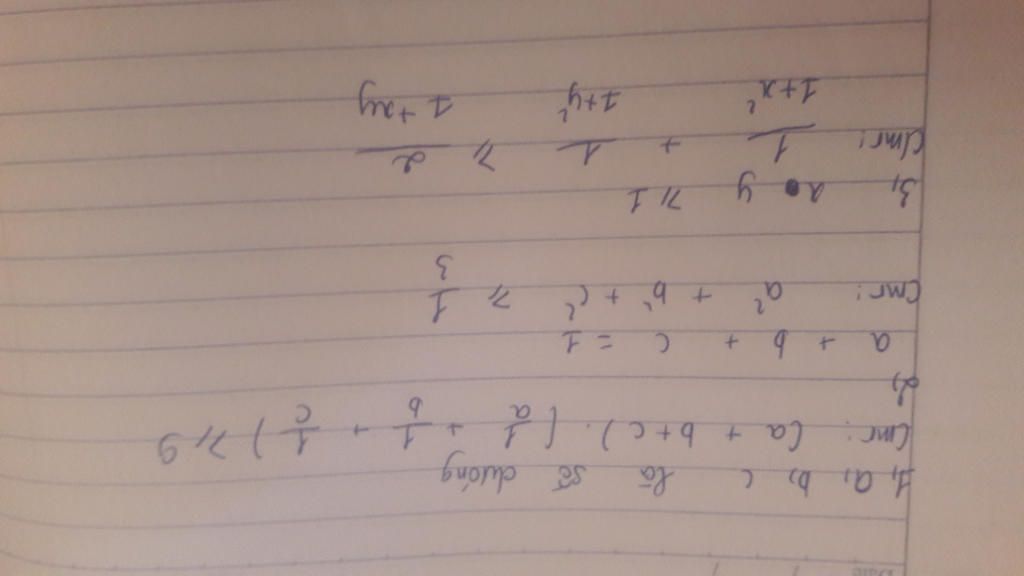 Date
1, a, b, c là số dương
Cmr: (a + b + c). (1/a + 1/b + 1/c) ⩾ 9
2,
a + b + c = 1
Cmr: a² + b² + c² ⩾ 1/3
3, x • y ⩾ 1
Cmr: 1/(1+x²) + 1/(1+y²) ⩾ 2/(1+xy)